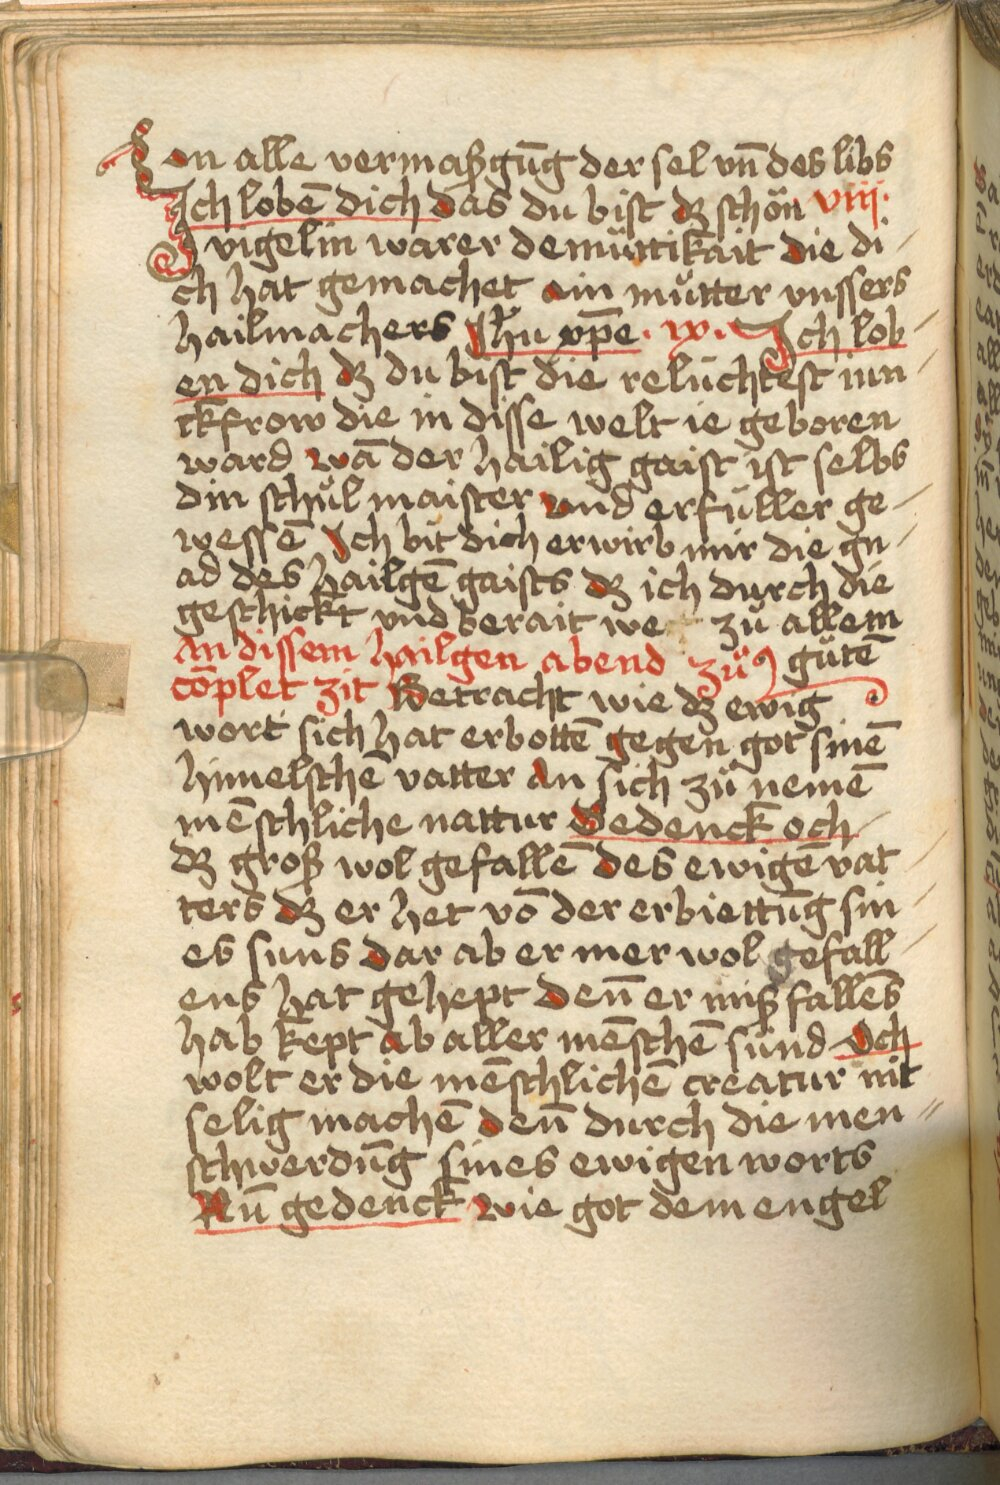 on alle vermaßgūg der sel vn̄ des libs
Ich lobē dich das du bist dʒ schön viij.
vigelin warer demüttikait die di
ch hat gemachet ain můtter vnssers
hailmachers Jhū xp̄e . ix. Ich lob
en dich dʒ du bist die relüchtest iun
ckfrow die in disse welt ie geboren
ward wā der hailig gaist ist selbs
din schůlmaister vnd erfüller ge
wessē Ich bit dich erwirb mir die gn
ad des hailgē gaists dʒ ich durch die
geschickt vnd berait we zů allem
An dissem hailgen abend zůꝰ gůtē
cōplet zit Betracht wie dʒ ewig
wort sich hat erbottē gegen got sinē
himelschē vatter an sich zů nemē
mēschliche nattur Gedenck och
dʒ groß wol gefallē des ewigē vat
ters dʒ er het vō der erbiettūg sin
es suns dar ab er mer wol gefall
ens hat gehept den̄ er mißfallēs
hab kept ab aller mēschē sünd Och
wolt er die mēschlichē creatur nit
selig machē den̄ durch die men
schwerdūg sines ewigen worts
Nū gedenck wie got dem engel